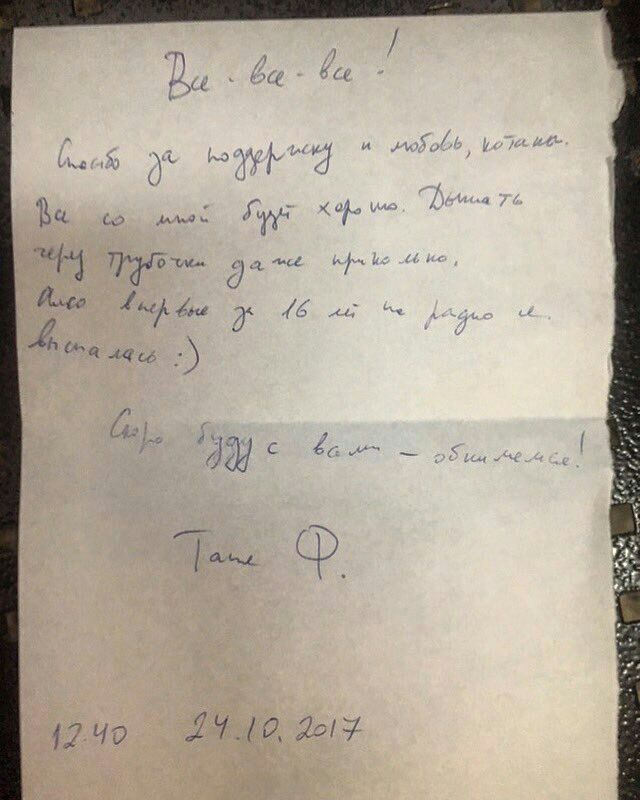 Все - все - все!
Спасибо за поддержку и любовь, котаны.
Все со мной будет хорошо. Дышать
через трубочки даже прикольно.
Алсо впервые за 16 лет на радио я
выспалась :)
Скоро буду с вами – обнимемся!
Таня Ф.
12.40 24.10.2017